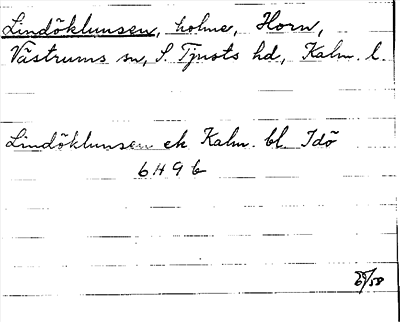 Lindöklunsen, holme, Horn,
Västrums sn, S. Tjusts hd, Kalm. l.
Lindöklunsen ek Kalm. bl. Idö
6H9b
/58